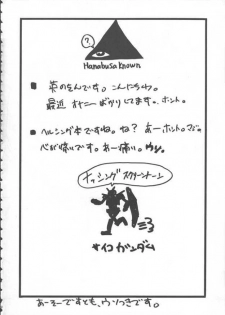 ?
Hanabusa Known
■ 英のぞんです。こんにちわ。
最近 オナニーばかりしてます。ホント。
■ ヘルシング本ですね。ね? あーホント。マジで
心が痛いです。あー痛い。ウソ。
ナッシング
スクリーントーン
サイコガンダム
あーそーですとも、ウソつきです。